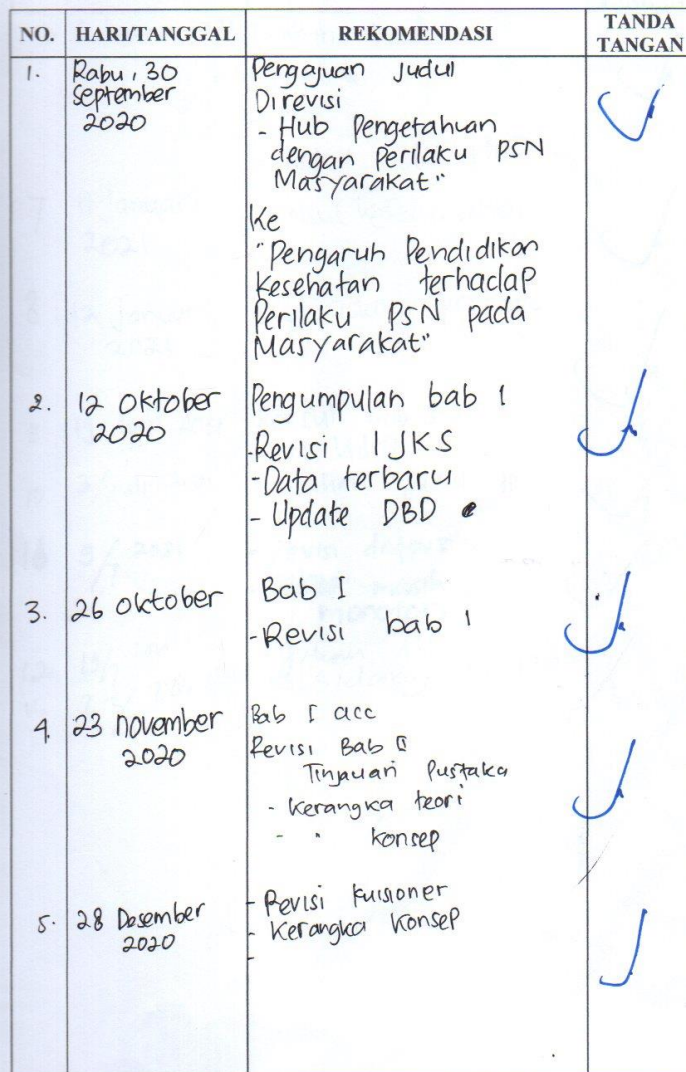 NO. HARI/TANGGAL REKOMENDASI TANDA TANGAN
1. Rabu, 30 September 2020
Pengajuan Judul
Direvisi
- Hub Pengetahuan
dengan Perilaku PSN
Masyarakat"
Ke
"Pengaruh Pendidikan
Kesehatan terhadap
Perilaku PSN pada
Masyarakat"
2. 12 Oktober 2020
Pengumpulan bab 1
-Revisi IJKS
-Data terbaru
- Update DBD
3. 26 Oktober
Bab I
-Revisi bab 1
4. 23 November 2020
Bab I acc
Revisi Bab II
Tinjauan Pustaka
- Kerangka teori
- " Konsep
5. 28 Desember 2020
- Revisi Kuisioner
- Kerangka Konsep
-